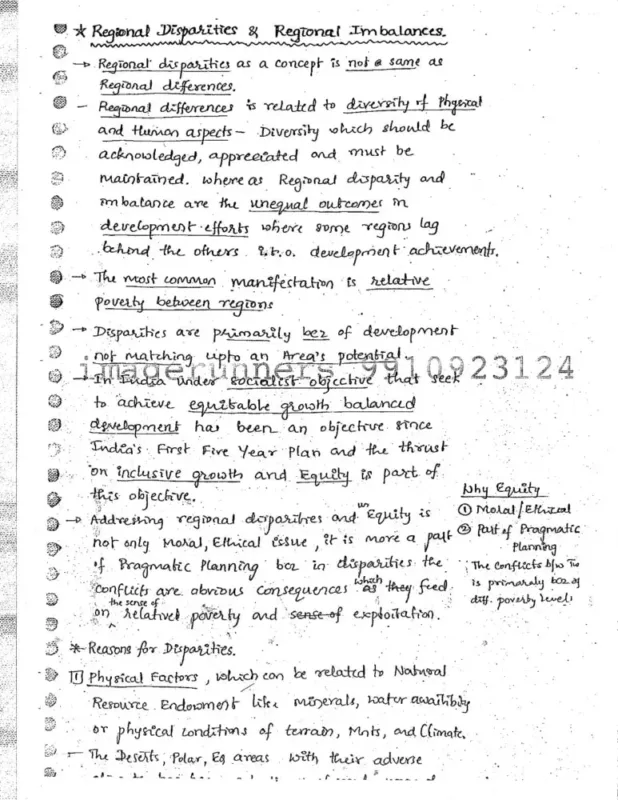 * Regional Disparities & Regional Imbalances.
→ Regional disparities as a concept is not a same as
Regional differences.
- Regional differences is related to diversity of Physical
and Human aspects - Diversity which should be
acknowledged, appreciated and must be
maintained. where as Regional disparity and
imbalance are the unequal outcomes in
development efforts where some regions lag
behind the others i.t.o. development achievements.
→ The most common manifestation is relative
poverty between regions
→ Disparities are primarily bcz of development
not matching upto an Area's potential.
imagerunners 9910923124
→ In India under socialist objective that seek
to achieve equitable growth balanced
development has been an objective since
India's First Five Year Plan and the thrust
on inclusive growth and Equity is part of
this objective.
→ Addressing regional disparities and Equity is
not only Moral, Ethical issue, it is more a part
of Pragmatic Planning bcz in disparities the
conflicts are obvious consequences which as they feed
on the sense of relative poverty and sense of exploitation.
Why Equity
① Moral/Ethical
② Part of Pragmatic
Planning
The conflicts b/w
is primarily bcz of
diff. poverty levels
* Reasons for Disparities.
1 Physical Factors, which can be related to Natural
Resource Endowment like minerals, water availibity
or physical conditions of terrain, Mnts, and Climate.
- The Deserts, Polar, Eq areas with their adverse